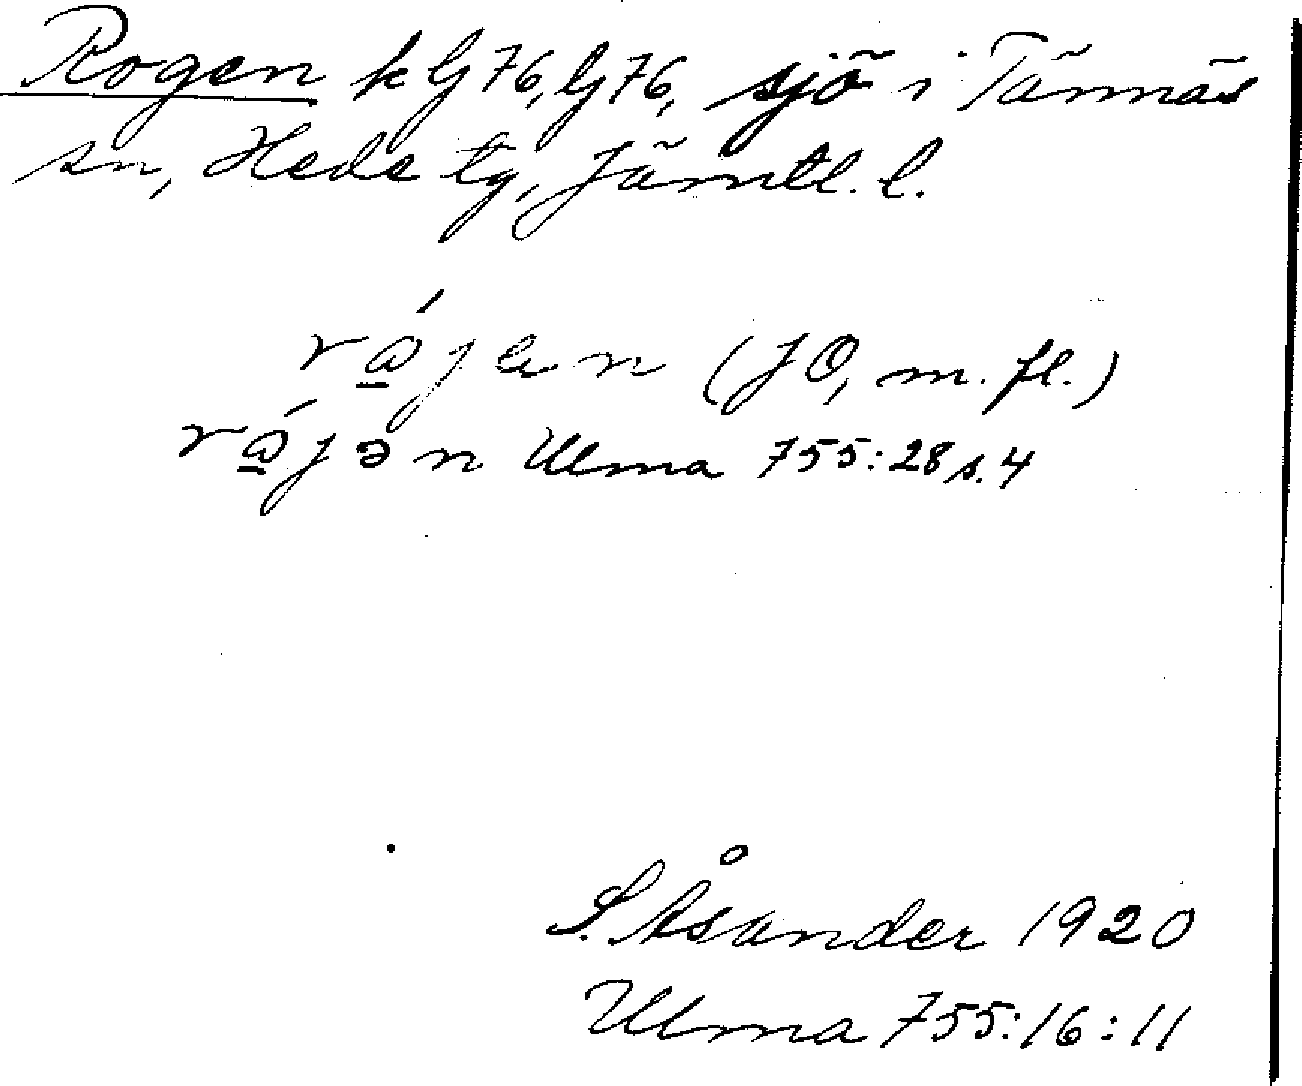 Rogen k G 76, G 76, sjö i Tännäs
sn, Hede tg, Jämtl. l.
rǻ̱jen (JO, m. fl.)
rǻ̱jən Ulma 755:28 s. 4
S. Åsander 1920
Ulma 755:16:11